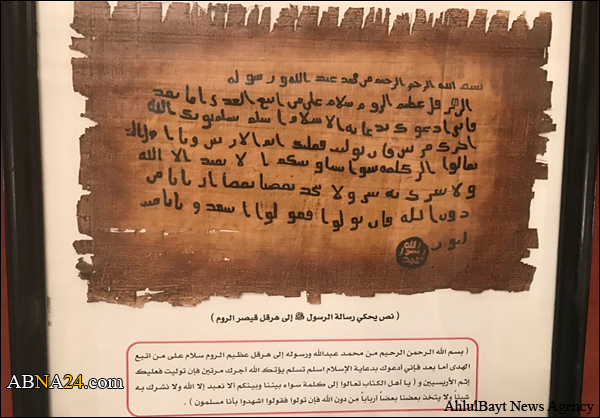 بسم الله الرحمن الرحيم من محمد عبد الله ورسوله
الى هرقل عظيم الروم سلام على من اتبع الهدى اما بعد
فانى ادعوك بدعاية الاسلام اسلم تسلم يوتك الله
اجرك مرتين فان توليت فعليك اثم الاريسين ويا اهل
تعالوا الى كلمة سوا بيننا وبينكم الا نعبد الا الله
ولا نشرك به شيا ولا يتخذ بعضنا بعضا اربابا من
دون الله فان تولوا فقولوا اشهدوا بانا مس
لمون
الله
رسول
محمد
( نص يحكي رسالة الرسول ﷺ إلى هرقل قيصر الروم )
( بسم الله الرحمن الرحيم من محمد عبدالله ورسوله إلى هرقل عظيم الروم سلام على من اتبع
الهدى اما بعد فإني أدعوك بدعاية الإسلام اسلم تسلم يؤتك الله اجرك مرتين فإن توليت فعليك
إثم الأريسيين و ( يا اهل الكتاب تعالوا إلى كلمة سواء بيننا وبينكم ألا نعبد إلا الله ولا نشرك به
شيئاً ولا يتخذ بعضنا بعضاً أرباباً من دون الله فإن تولوا فقولوا اشهدوا بأنا مسلمون ) .
ABNA24.com
AhlulBayt News Agency